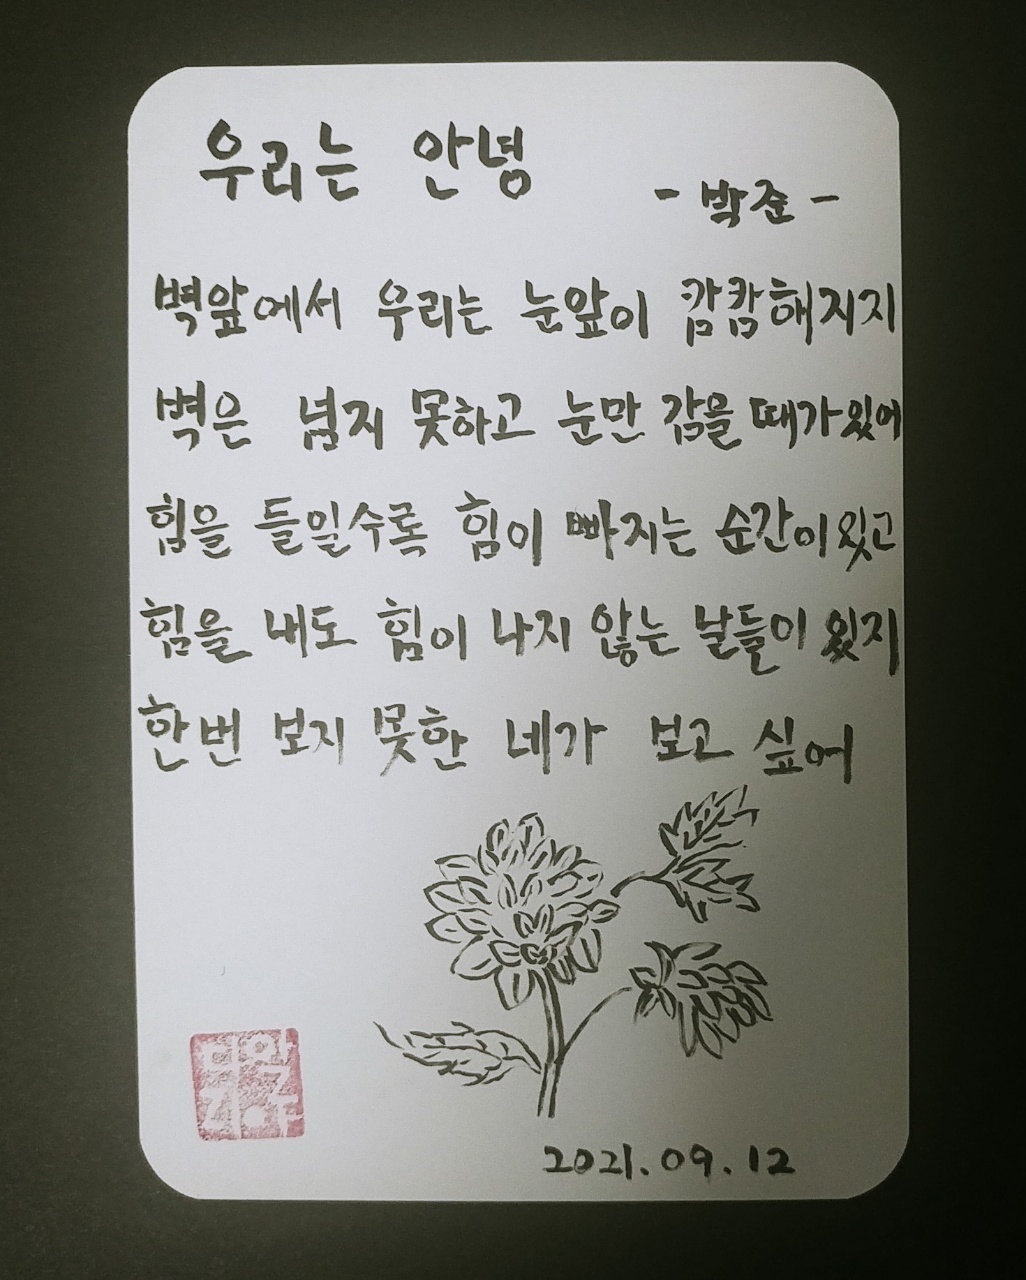 우리는 안녕
- 박준 -
벽앞에서 우리는 눈앞이 캄캄해지지
벽은 넘지 못하고 눈만 감을 때가 있어
힘을 들일수록 힘이 빠지는 순간이 있고
힘을 내도 힘이 나지 않는 날들이 있지
한번 보지 못한 네가 보고 싶어
2021.09.12